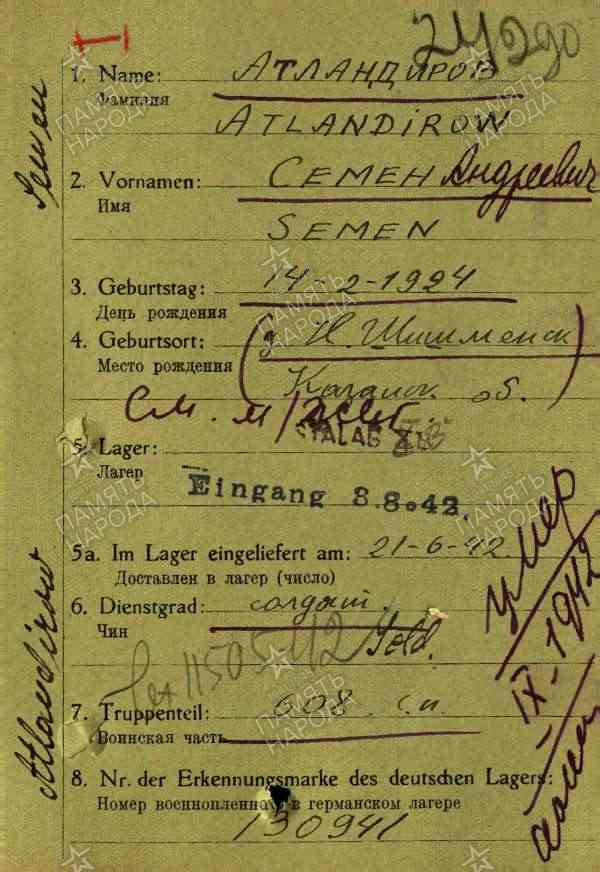 I
242
1. Name: АТЛАНДИРОВ
Фамилия
ATLANDIROW
2. Vornamen: СЕМЕН Андреевич
Имя
SEMEN
3. Geburtstag: 14-2-1924
День рождения
4. Geburtsort: (д Н. Шишменск
Место рождения
Казанск. об.)
см. м/
STALAG
5. Lager:
Лагер
Eingang 8.8.42.
5a. Im Lager eingeliefert am: 21-6-42.
Доставлен в лагер (число)
6. Dienstgrad: солдат.
Чин
Sold.
7. Truppenteil: 608 с.п.
Воинская часть
8. Nr. der Erkennungsmarke des deutschen Lagers:
Номер военнопленного в германском лагере
130941
Semen
Atlandirow
умер
IX-1942
ПАМЯТЬ
НАРОДА